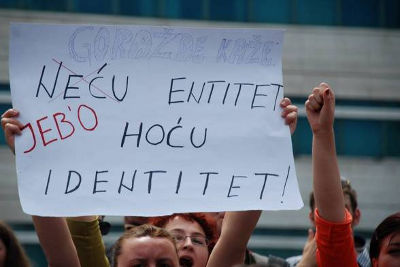 GORAŽDE KAŽE
NEĆU ENTITET
JEB'O HOĆU
IDENTITET!